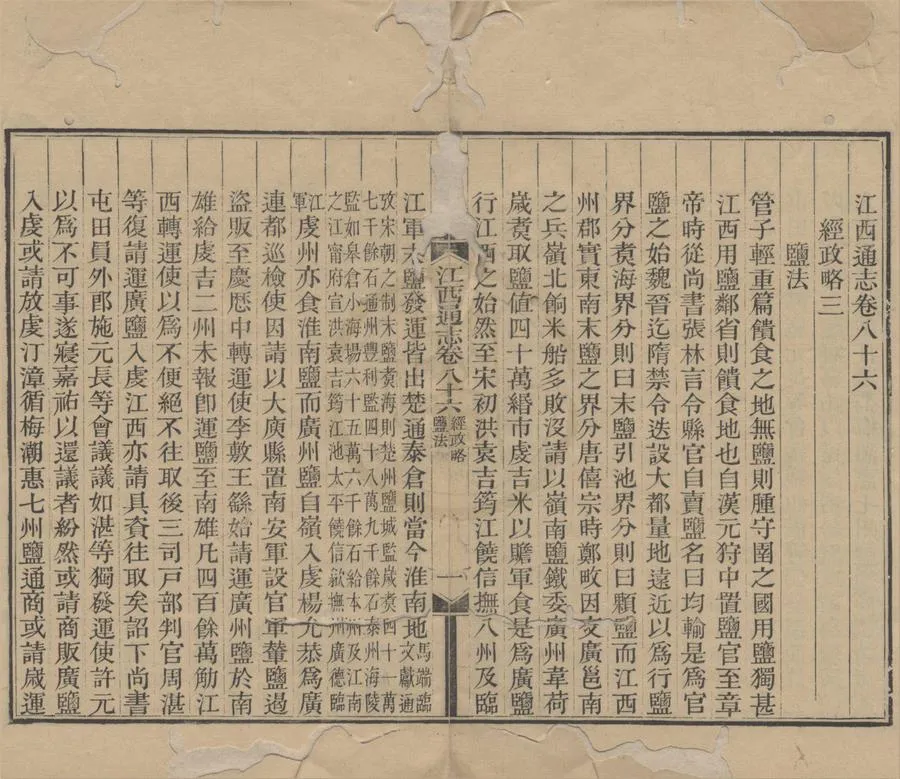 江西通志卷八十六
經政略三
鹽法
管子輕重篇饋食之地無鹽則腫守圉之國用鹽獨甚
江西用鹽鄰省則饋食地也自漢元狩中置鹽官至章
帝時從尚書張林言令縣官自賣鹽名曰均輸是爲官
鹽之始魏晉迄隋禁令迭設大都量地遠近以爲行鹽
界分煑海界分則曰末鹽引池界分則曰顆鹽而江西
州郡實東南末鹽之界分唐僖宗時鄭畋因交廣邕南
之兵嶺北餉米船多敗沒請以嶺南鹽鐵委廣州韋荷
歲煑取鹽值四十萬緡市虔吉米以贍軍食是爲廣鹽
行江西之始然至宋初洪袁吉筠江饒信撫八州及臨
江西通志卷八十六 經政略 鹽法 一
江軍末鹽發運皆出楚通泰倉則當今淮南地馬端臨文獻通
攷宋朝之制末鹽煑海則楚州鹽城監歲煑四十一萬
七千餘石通州豐利監四十八萬九千餘石泰州海陵
監如皋倉小海場六十五萬六千餘石給本州及江南
之江甯府宣洪袁吉筠江池太平饒信歙撫州廣德臨
江軍虔州亦食淮南鹽而廣州鹽自嶺入虔楊允恭爲廣
連都巡檢使因請以大庾縣置南安軍設官軍輦鹽過
盜販至慶歷中轉運使李敷王繇始請運廣州鹽於南
雄給虔吉二州未報卽運鹽至南雄凡四百餘萬觔江
西轉運使以爲不便絕不往取後三司戸部判官周湛
等復請運廣鹽入虔江西亦請具資往取矣詔下尚書
屯田員外郎施元長等會議議如湛等獨發運使許元
以爲不可事遂寢嘉祐以還議者紛然或請商販廣鹽
入虔或請放虔汀漳循梅潮惠七州鹽通商或請歲運